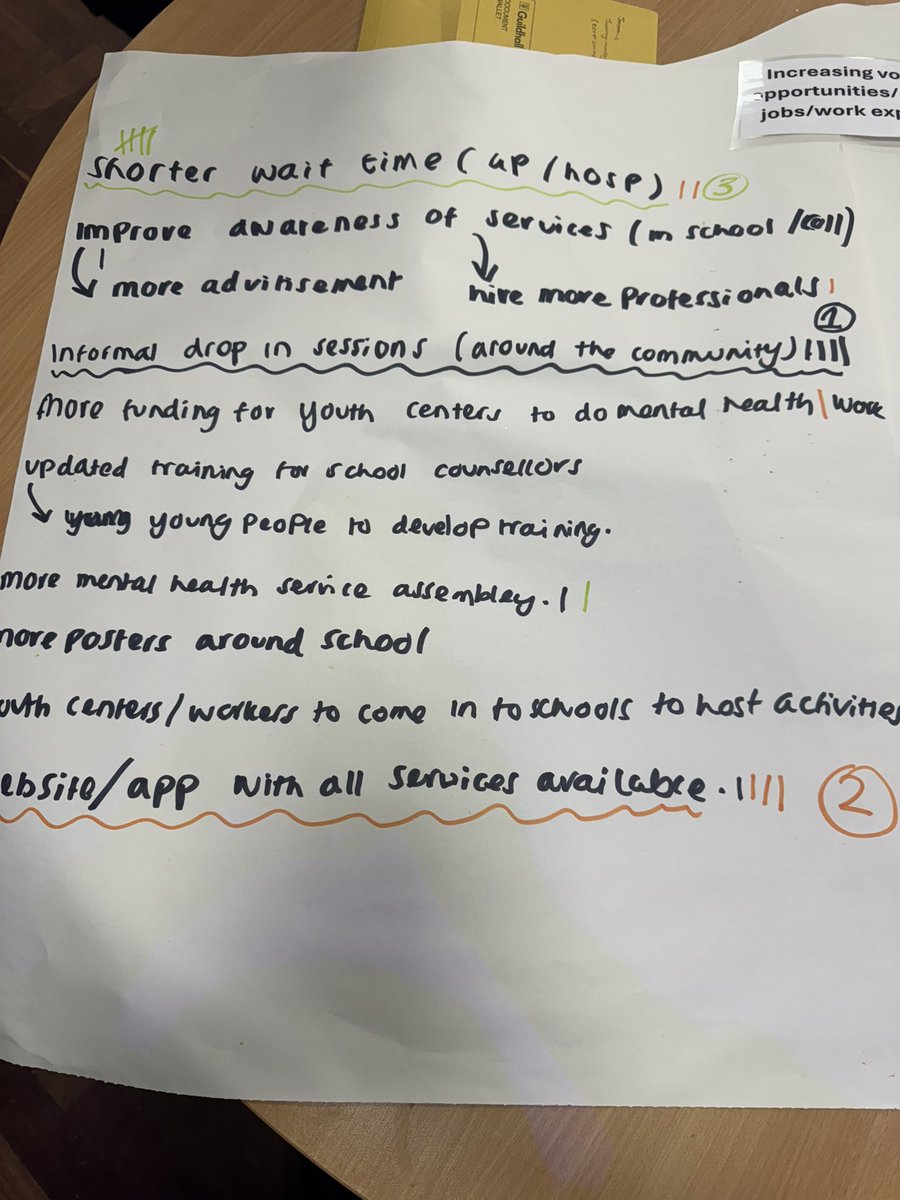 Guildhall
DOCUMENT
WALLET
Increasing vo
pportunities/
jobs/work exp
shorter wait time (up/hosp) 3
improve awareness of services (in school /coll)
more advirisement
hire more professionals
1
informal drop in sessions (around the community)
more funding for youth centers to do mental health work
updated training for school counsellors
young young people to develop training.
more mental health service assembley.
more posters around school
outh centers/workers to come in to schools to host activities
ebsite/app with all services available. 2